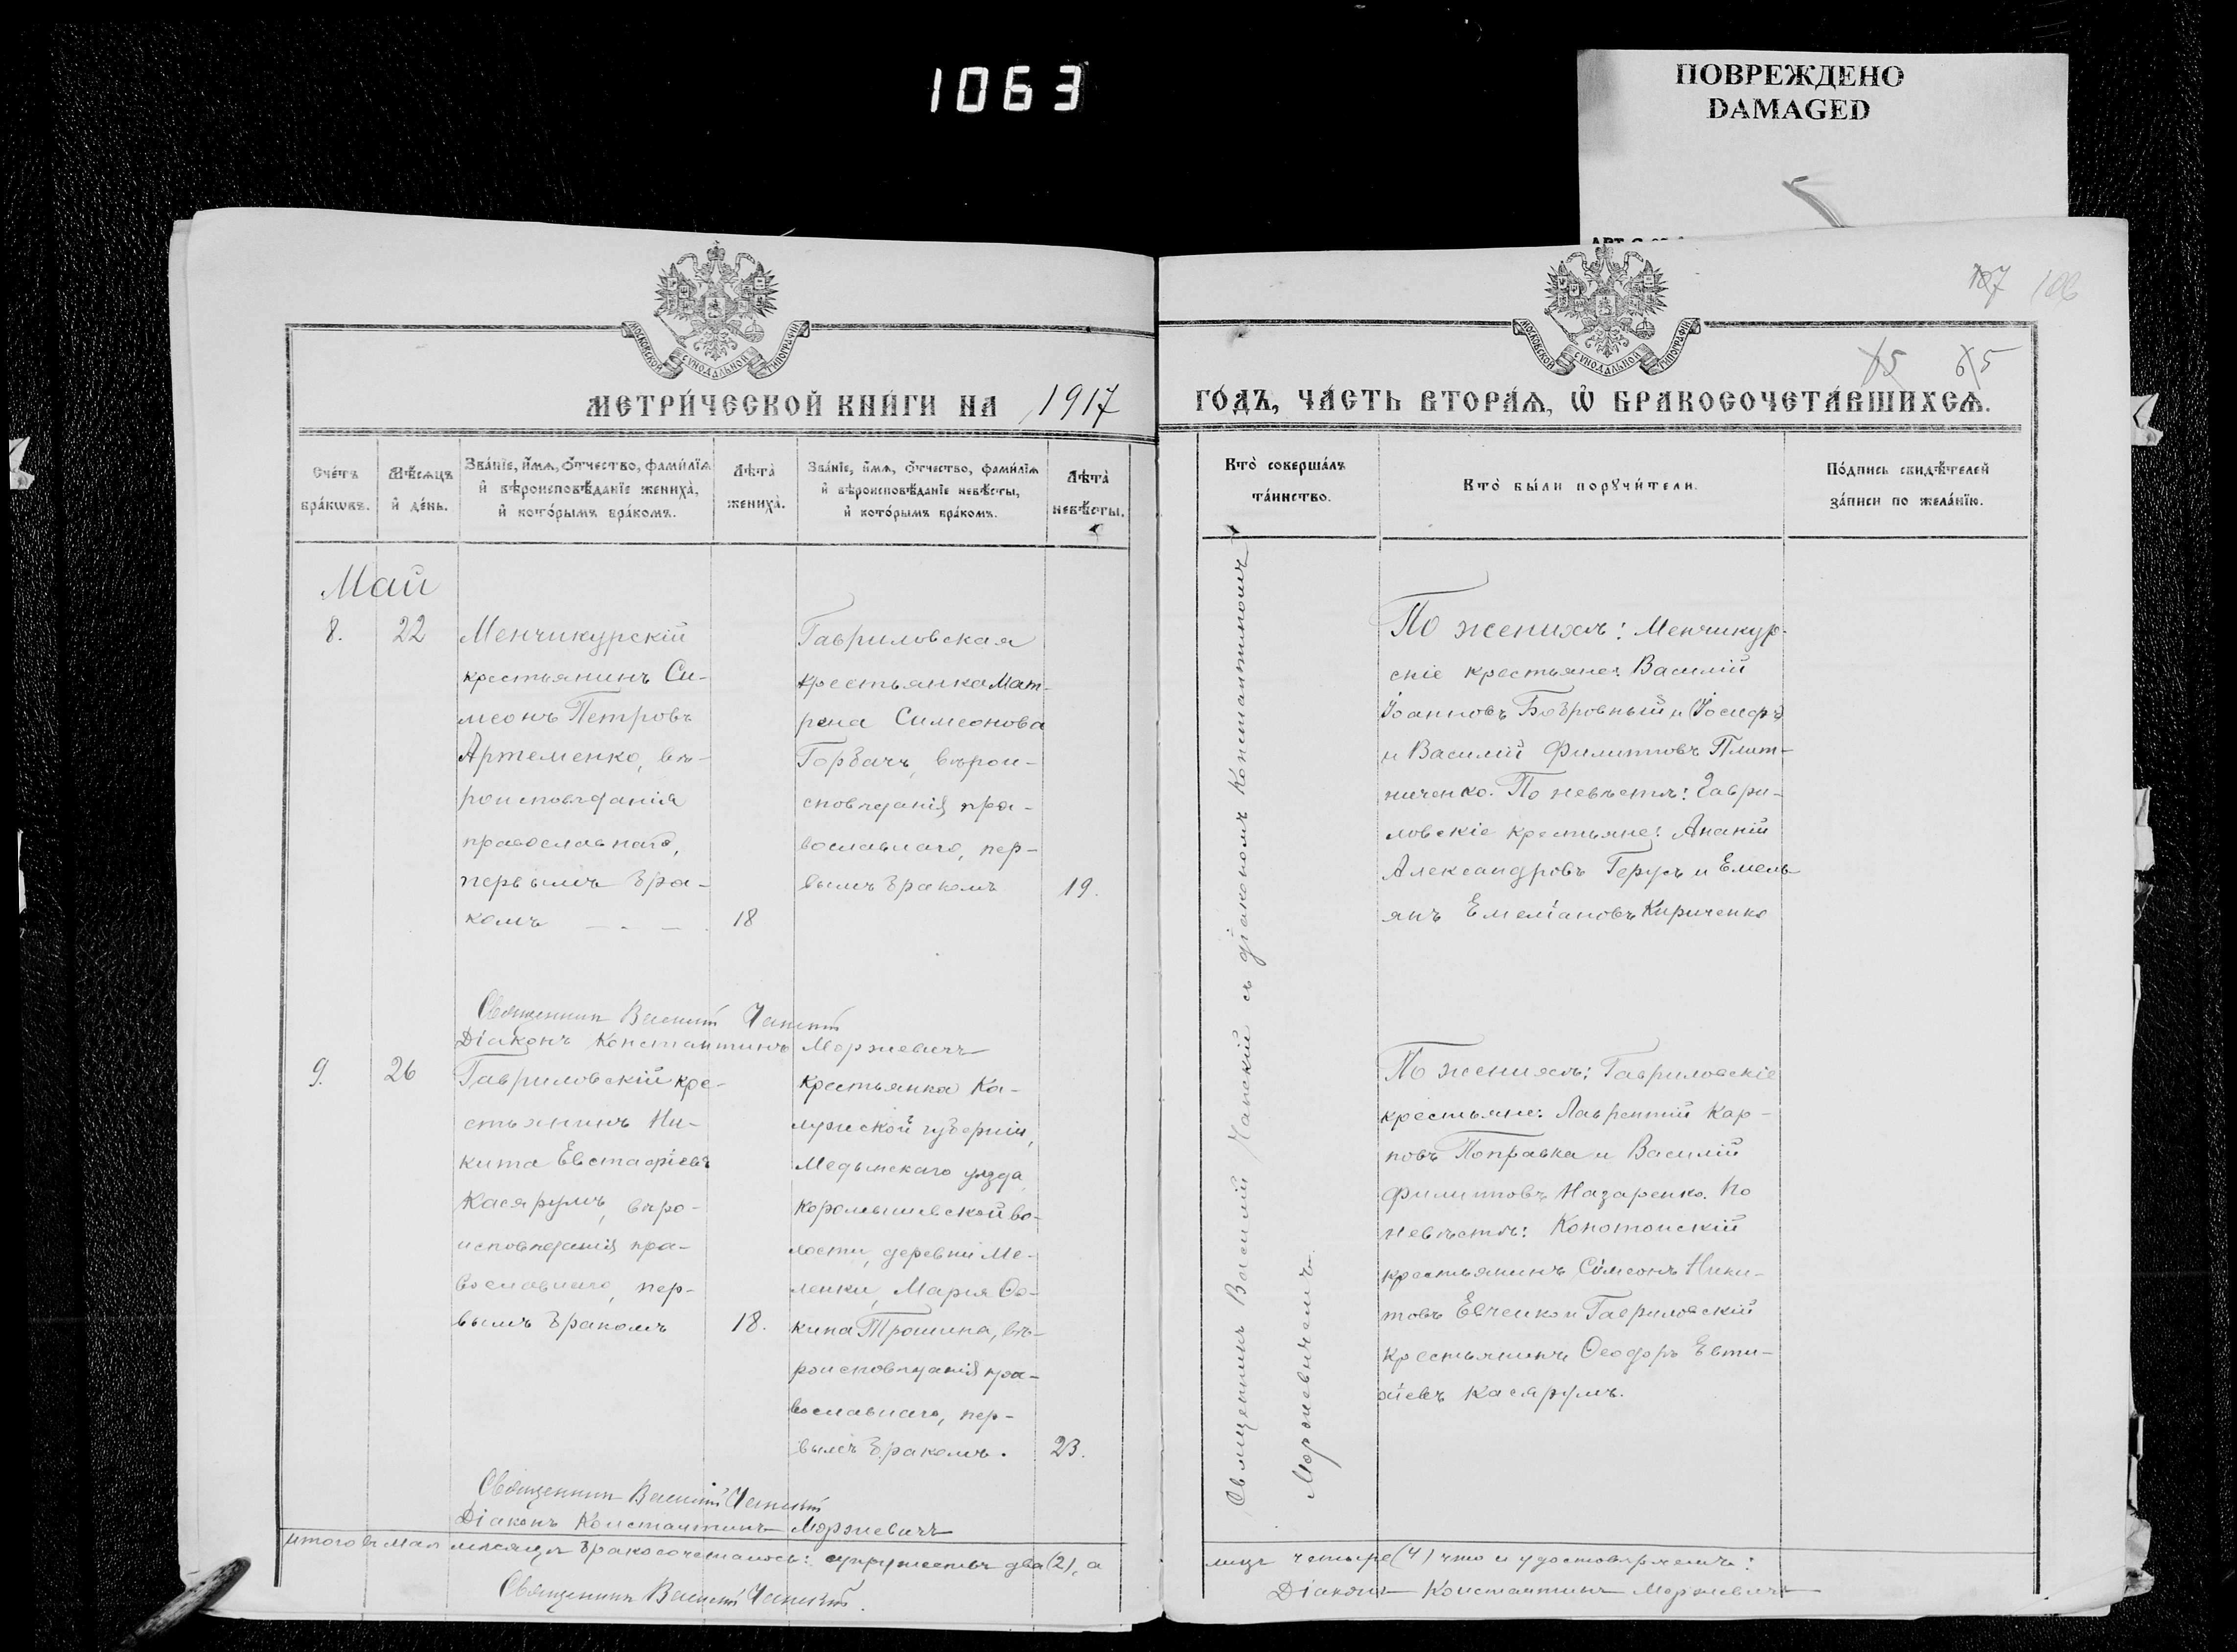 1063
ПОВРЕЖДЕНО
DAMAGED
107 106
65 65
МОСКОВСКОЙ СѴНОДАЛЬНОЙ ТИПОГРАФІИ
МОСКОВСКОЙ СѴНОДАЛЬНОЙ ТИПОГРАФІИ
МЕТРИ́ЧЕСКОЙ КНИ́ГИ НА 1917 ГО́ДЪ, ЧА́СТЬ ВТОРА́Ѧ, Ѽ БРАКОСОЧЕТА́ВШИХСѦ.
Сче́тъ
бра́кѡвъ.
Мѣ́сѧцъ
и҆ де́нь.
Зва́нїе, и҆́мѧ, ѻ҆́тчество, фами́лїѧ
и҆ вѣроисповѣ́данїе жениха̀,
и҆ кото́рымъ бра́комъ.
Лѣ́та̀
жениха̀.
Зва́нїе, и҆́мѧ, ѻ҆́тчество, фами́лїѧ
и҆ вѣроисповѣ́данїе невѣ́сты,
и҆ кото́рымъ бра́комъ.
Лѣ́та̀
невѣ́сты.
Кто̀ соверша́лъ
та́инство.
Кто̀ бы́ли порꙋчи́тели.
По́дпись свидѣ́телей
за́писи по жела́нїю.
Май
8.
22
Менчикурскій
крестьянинъ Си-
меонъ Петровъ
Артеменко, вѣ-
роисповѣданія
православнаго,
первымъ бра-
комъ
18
Гавриловская
крестьянка Мат-
рона Симеонова
Горбачъ, вѣрои-
сповѣданія пра-
вославнаго, пер-
вымъ бракомъ
19.
По женихѣ: Менчикур-
скіе крестьяне: Василій
Іоанновъ Бобровный и Іосифъ
и Василій Филипповъ Плит-
ниченко. По невѣстѣ: Гаври-
ловскіе крестьяне: Ананій
Александровъ Герусъ и Емель-
янъ Емеліановъ Кириченко
Священникъ Василій
Діаконъ Константинъ Моржевичъ
9.
26
Гавриловскій кре-
стьянинъ Ни-
кита Евстафіевъ
Касярумъ, вѣро-
исповѣданія пра-
вославнаго, пер-
вымъ бракомъ
18.
Крестьянка Ка-
лужской губерніи,
Медынскаго уѣзда,
Коромышевской во-
лости, деревни Ме-
ленки, Марія Ѳо-
кина Трошина, вѣ-
роисповѣданія пра-
вославнаго, пер-
вымъ бракомъ.
23.
По женихѣ: Гавриловскіе
крестьяне: Лаврентій Кар-
повъ Поправка и Василій
Филипповъ Назаренко. По
невѣстѣ: Конотопскій
крестьянинъ Симеонъ Ники-
товъ Евченко и Гавриловскій
крестьянинъ Ѳеодоръ Евти-
хіевъ Касярумъ.
Священникъ Василій съ діакономъ Константиномъ
Моржевичемъ.
Священникъ Василій
Діаконъ Константинъ Моржевичъ
Итого въ Маѣ мѣсяцѣ бракосочеталось: супружествъ два (2), а
лицъ четыре (4) что и удостовѣряемъ:
Священникъ Василій
Діаконъ Константинъ Моржевичъ